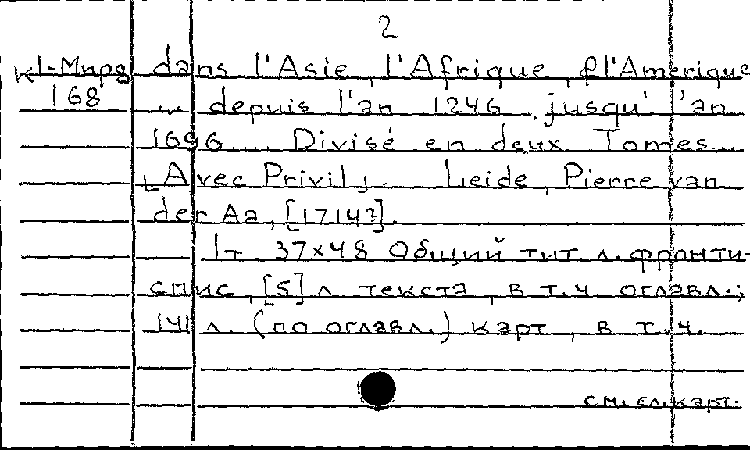 2
К1-Мирв dans l'Asie, l'Afrique, & l'Amerique
168 ... depuis l'an 1246 jusqu' 'an
1696 ... Divisé en deux Tomes...
[Avec Privil]. Leide, Pierre van
der Aa, [1714?].
1т 37×48 Общий тит л. фронти-
спис, [5] л. текста, в т.ч оглавл.;
141 л. (по оглавл.) карт, в т.ч.
см. сл. карт.